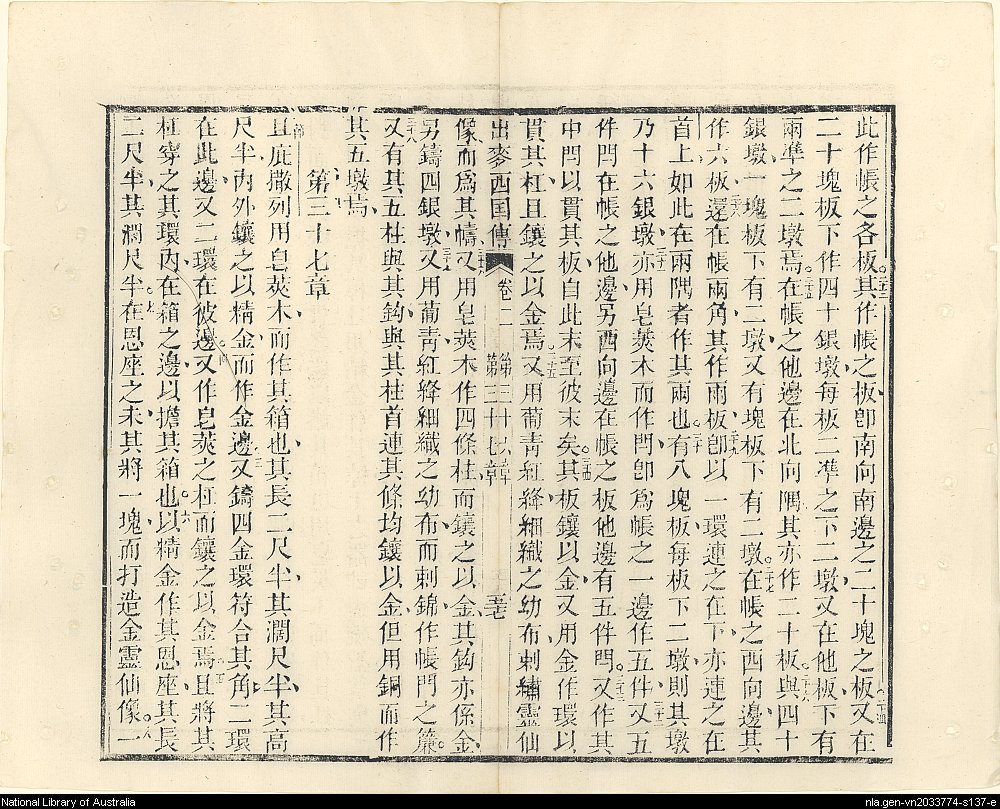 此作帳之各板其作帳之板卽南向南邊之二十塊之板又在
二十塊板下作四十銀墩每板二凖之下二墩又在他板下有
兩凖之二墩焉在帳之他邊在北向隅其亦作二十板與四十
銀墩一塊板下有二墩又有塊板下有二墩在帳之西向邊其
作六板還在帳兩角其作兩板卽以一環連之在下亦連之在
首上如此在兩隅者作其兩也有八塊板每板下二墩則其墩
乃十六銀墩亦用皂莢木而作閂卽爲帳之一邊作五件又五
件閂在帳之他邊另西向邊在帳之板他邊有五件閂又作其
中閂以貫其板自此末至彼末矣其板鑲以金又用金作環以
貫其杠且鑲之以金焉又用葡靑紅絳細織之幼布刺繡靈仙
出麥西囯傳 卷二 第三十六章 第三十七章
像而爲其幬又用皂莢木作四條柱而鑲之以金其鈎亦係金
另鑄四銀墩又用葡靑紅絳細織之幼布而刺錦作帳門之簾
又有其五柱與其鈎與其柱首連其條均鑲以金但用銅而作
其五墩焉
第三十七章
且庇撒列用皂莢木而作其箱也其長二尺半其濶尺半其高
尺半內外鑲之以精金而作金邊又鑄四金環符合其角二環
在此邊又二環在彼邊又作皂莢之杠而鑲之以金焉且將其
杠穿之其環內在箱之邊以擔其箱也以精金作其恩座其長
二尺半其濶尺半在恩座之末其將一塊而打造金靈仙像一
National Library of Australia
nla.gen-vn2033774-s137-e